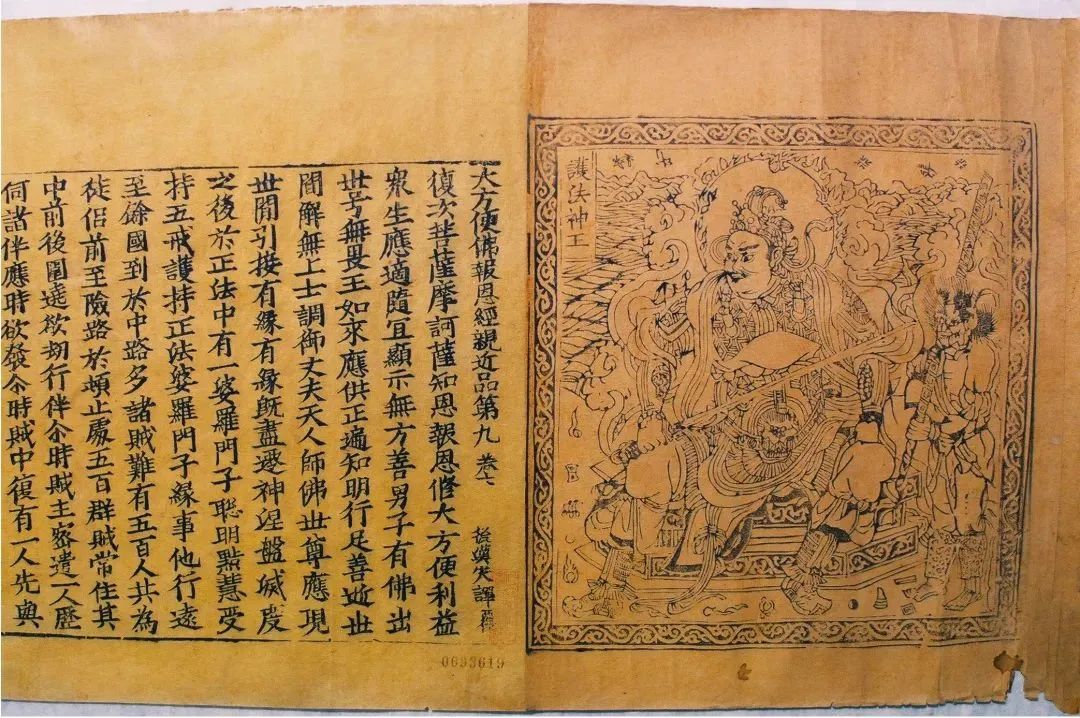 護法神王
大方便佛報恩經親近品第九 卷七 後漢失譯
復次菩薩摩訶薩知恩報恩修大方便利益
衆生應適隨宜顯示無方善男子有佛出
世号無畏王如来應供正遍知明行足善逝世
間解無上士調御丈夫天人師佛世尊應現
世間引接有縁有縁既盡遷神涅盤滅度
之後於正法中有一婆羅門子聡明黠慧受
持五戒護持正法婆羅門子縁事他行遠
至餘國到於中路多諸賊難有五百人共為
徒侣前至險路於頓止處五百群賊常住其
中前後圍遶欲刼行伴尒時賊主密遣一人歷
伺諸伴應時欲發尒時賊中復有一人先與
0693619